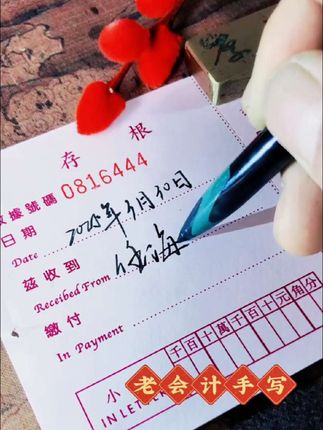 存根
收據號碼 0816444
日期
Date 2025年3月30日
兹收到
Receibed From 任海
繳付
In Payment
小
IN LETTER
千百十萬千百十元角分
老会计手写